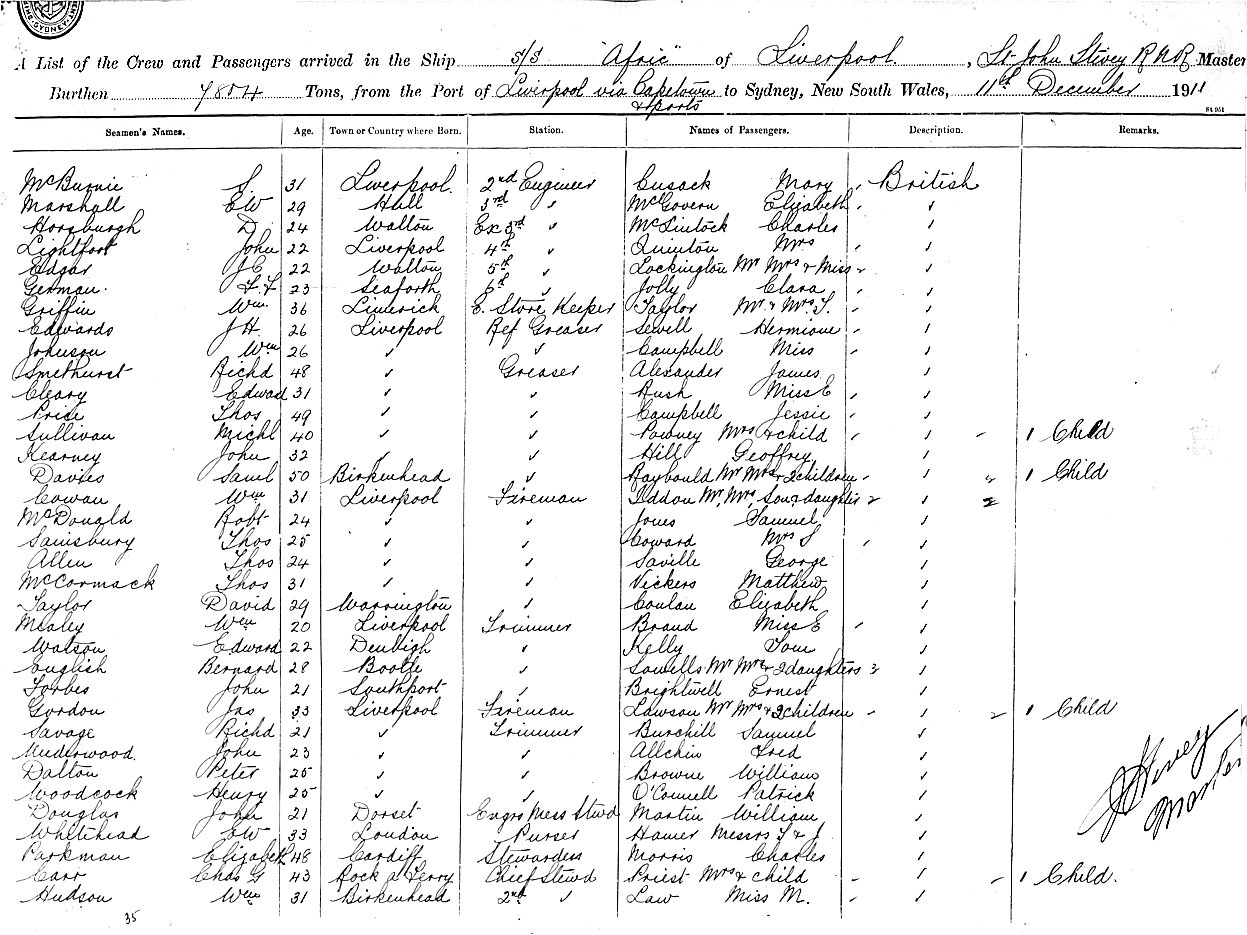 SYDNEY
A List of the Crew and Passengers arrived in the Ship S/S "Afric" of Liverpool, St John Stivey RNR Master
Burthen 7804 Tons, from the Port of Liverpool via Capetown & ports to Sydney, New South Wales, 11th December 1911
St 951
Seamen's Names. Age. Town or Country where Born. Station. Names of Passengers. Description. Remarks.
McBurnie S. 31 Liverpool. 2nd Engineer Cusack Mary British
Marshall EW 29 Hull 3rd " McGovern Elizabeth "
Horsburgh D. 24 Walton Ex 3rd " McLintock Charles "
Lightfoot John 22 Liverpool 4th " Quinton Mrs "
Edgar JC 22 Walton 5th " Lockington Mr Mrs & Miss "
German. F.F 23 Seaforth 6th " Jolly Clara "
Griffin Wm 36 Limerick E. Store Keeper Taylor Mr & Mrs T. "
Edwards JH. 26 Liverpool Ref Greaser Sewell Hermione "
Johnson Wm 26 " " Campbell Miss "
Smethurst Richd 48 " Greaser Alexander James "
Cleary Edward 31 " " Rush Miss E "
Price Thos 49 " " Campbell Jessie "
Sullivan Michl 40 " " Powney Mrs & child " - 1 Child
Kearney John 32 " " Hill Geoffrey "
Davies Saml 50 Birkenhead " Raybould Mr Mrs & 2 children " 1 Child
Cowan Wm 31 Liverpool Fireman Iddon Mr, Mrs, Son & daughter 2 " 2
McDonald Robt 24 " " Jones Samuel "
Sainsbury Thos 25 " " Coward Mrs S "
Allen Thos 24 " " Saville George "
McCormack Thos 31 " " Vickers Matthew "
Taylor David 29 Warrington " Conlan Elizabeth "
Mealey Wm 20 Liverpool Trimmer Brand Miss E "
Watson Edward 22 Denbigh " Kelly Tom "
English Bernard 28 Bootle " Sowells Mr Mrs & 2 daughters 3 "
Forbes John 21 Southport " Brightwell Ernest "
Gordon Jas 33 Liverpool Fireman Lawson Mr Mrs & 2 children " 2 1 Child
Savage Richd 21 " Trimmer Burchill Samuel "
Underwood. John 23 " " Allchin Fred "
Dalton Peter 25 " " Browne William "
Woodcock Henry 25 " " O'Connell Patrick "
Douglas John 21 Dorset Engrs Mess Stwd Martin William "
Whitehead EW 33 London Purser Hamer Messrs T & J. "
Parkman Elizabeth 48 Cardiff Stewardess Morris Charles "
Carr Chas G 43 Rock a Ferry Chief Stewd Priest Mrs & child " - 1 Child.
Hudson Wm 31 Birkenhead 2nd " Law Miss M. "
35
Master